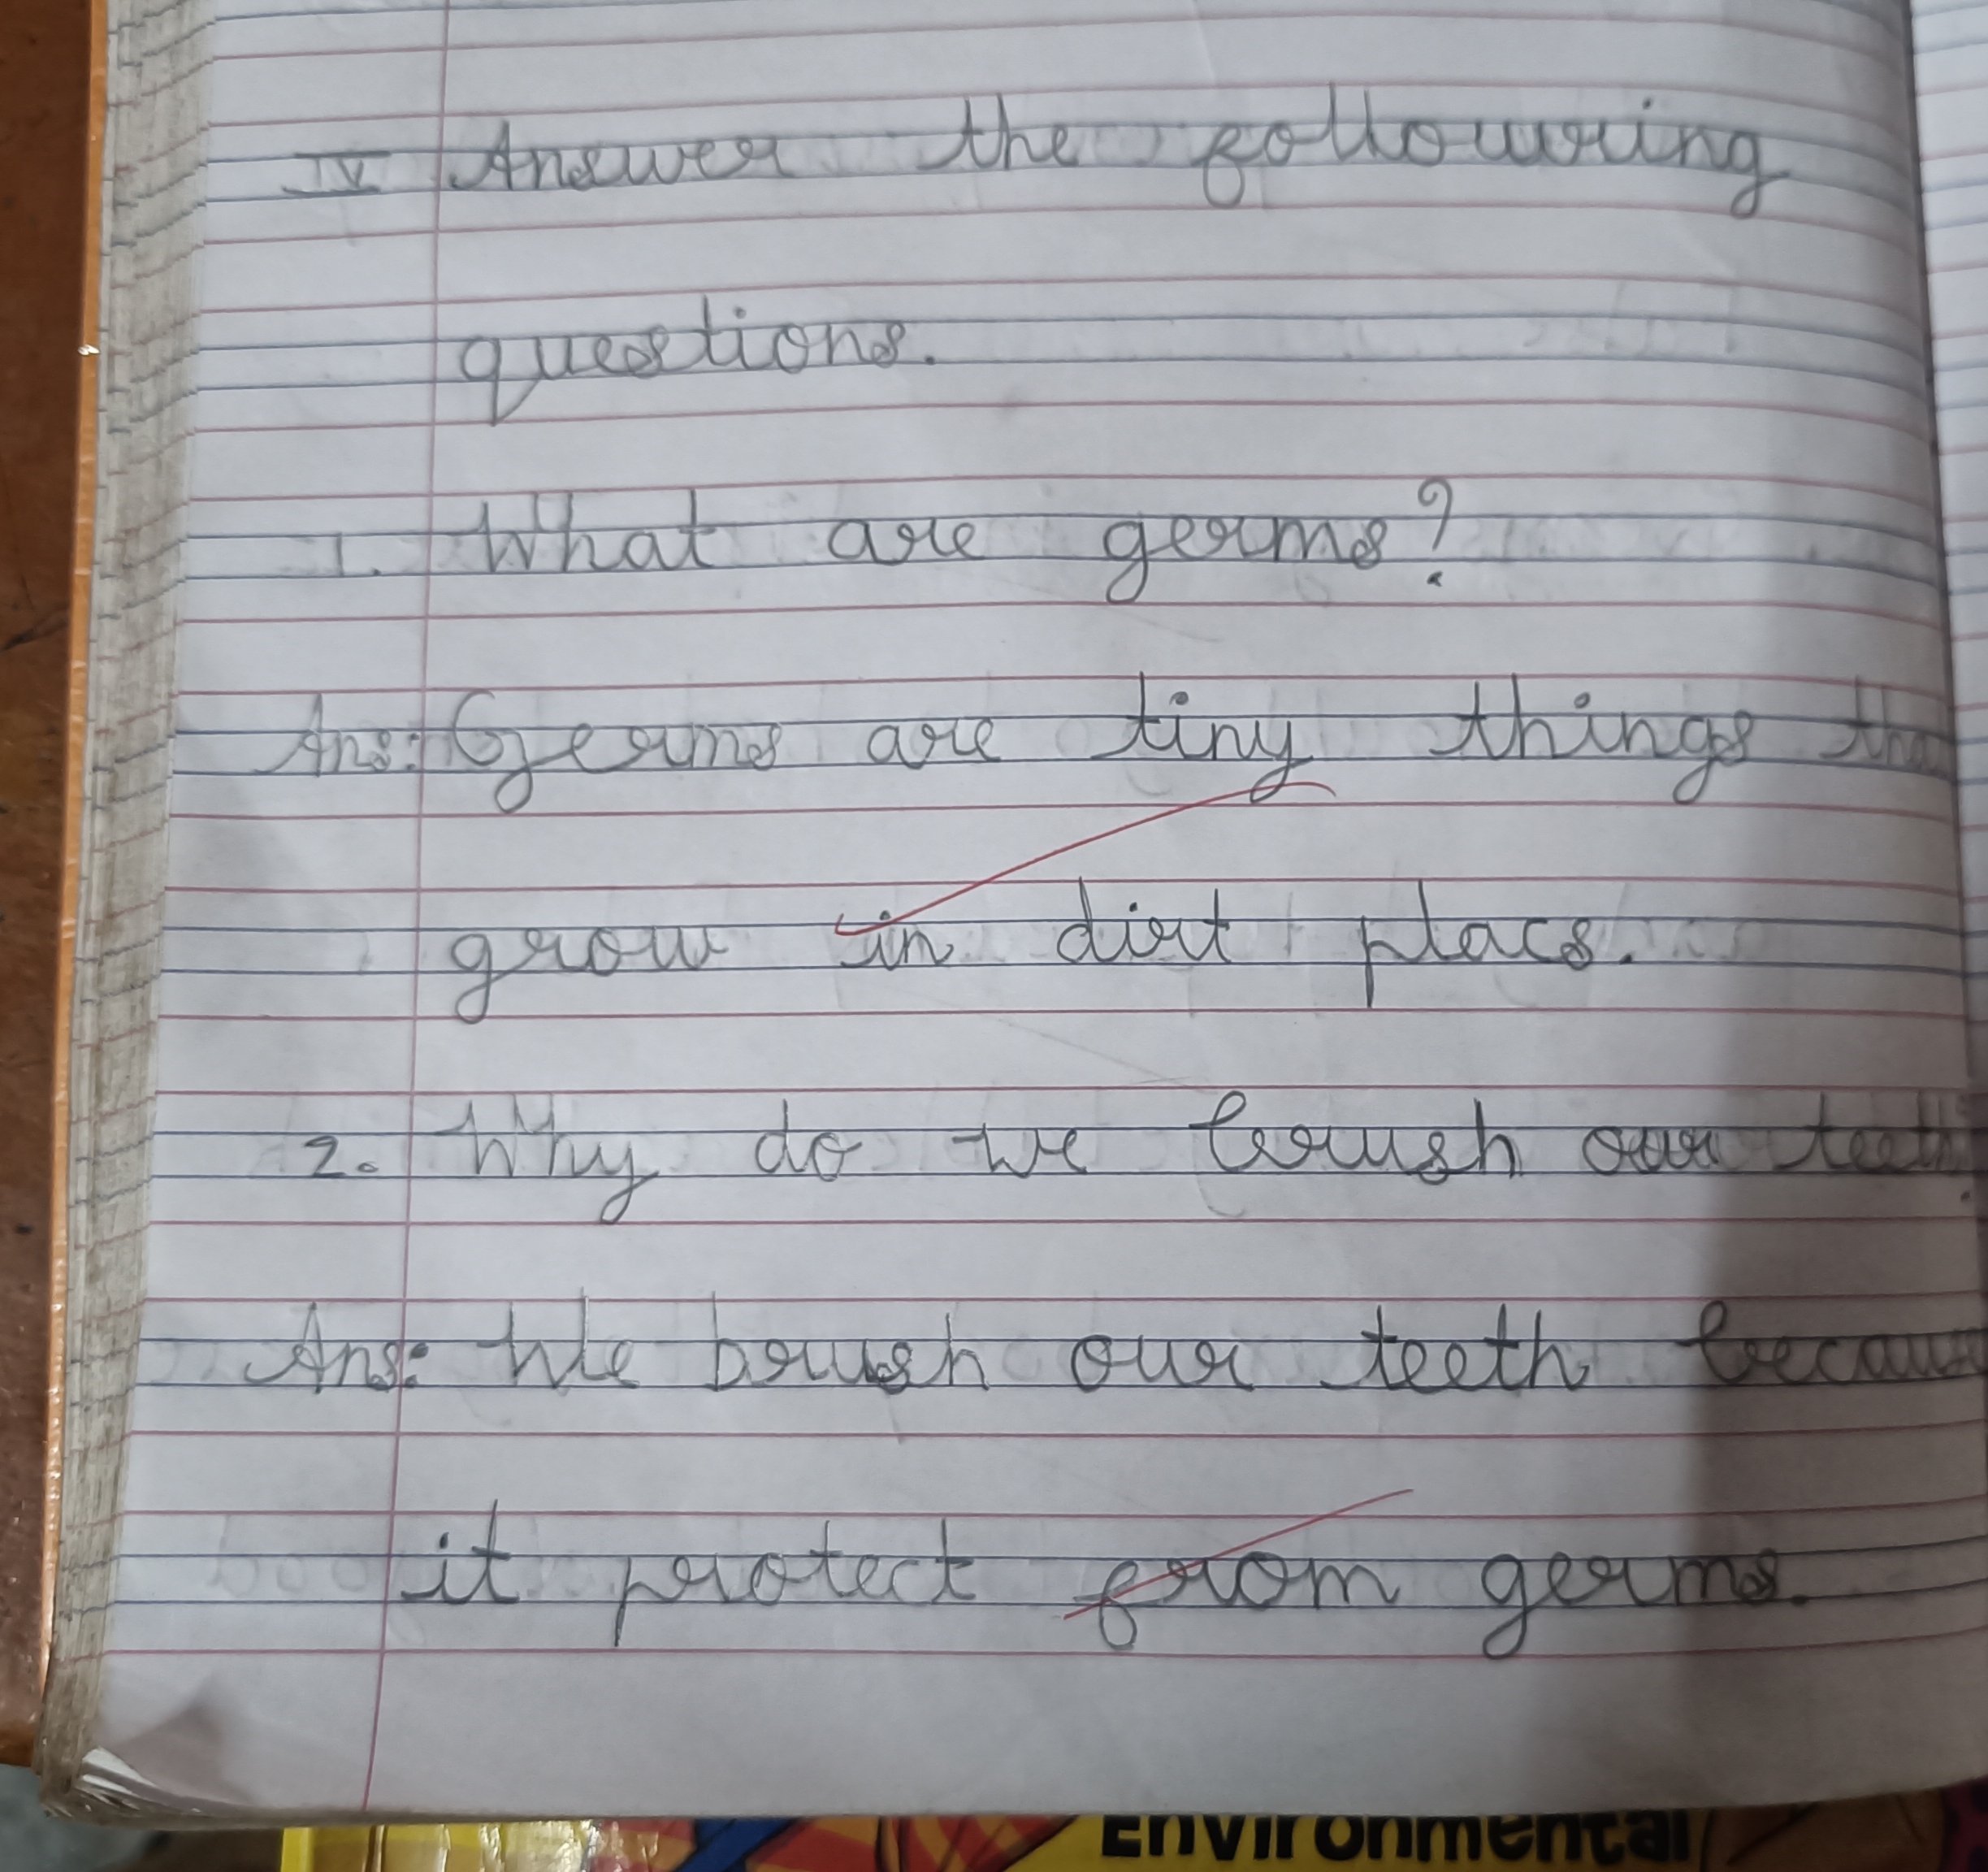 IV Answer the following
questions.
1. What are germs?
Ans: Germs are tiny things tha
grow in dirt placs.
2. Why do we brush our teeth?
Ans: We brush our teeth becau
it protect from germs.
Environmental